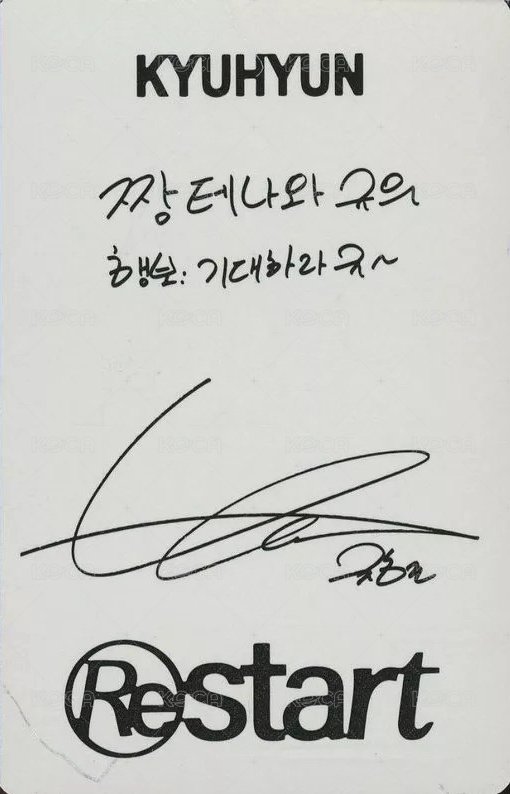 KYUHYUN
짱 테나와 규의
행보: 기대하라규~
규현
Restart